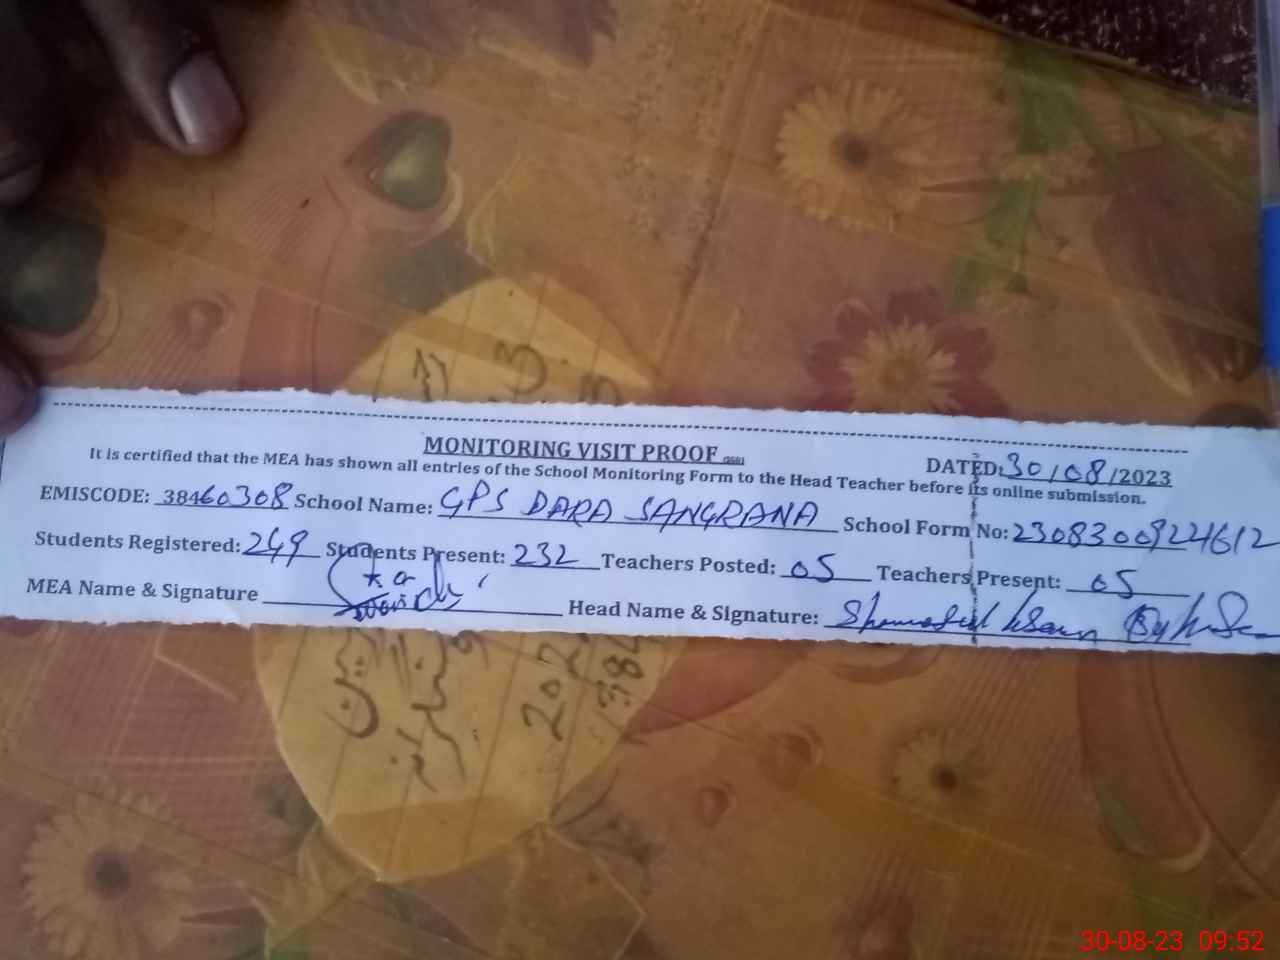 MONITORING VISIT PROOF
DATED: 30/08/2023
It is certified that the MEA has shown all entries of the School Monitoring Form to the Head Teacher before its online submission.
EMISCODE: 38460308 School Name: GPS DARA SANGRANA School Form No: 23083009224612
Students Registered: 249 Students Present: 232 Teachers Posted: 05 Teachers Present: 05
MEA Name & Signature Head Name & Signature:
30-08-23 09:52